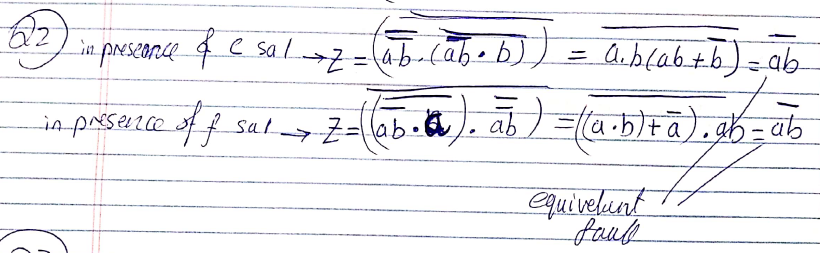 Q2) in preseance of c sa1 → Z = \overline{(\overline{\overline{ab}} . (\overline{\overline{ab} . b}))} = \overline{a.b(ab+\overline{b})} = \overline{ab}
in presence of f sa1 → Z = \overline{((\overline{\overline{ab} . a}) . \overline{\overline{ab}})} = \overline{((a.b)+\overline{a}) . ab} = \overline{ab}
equivelunt
fault